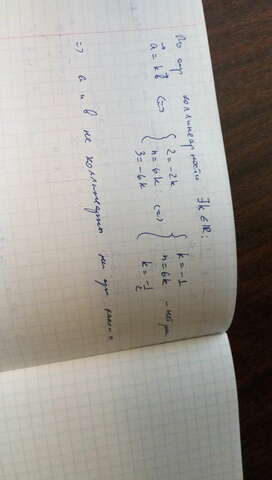 По опр коллинеарности ∃k ∈ ℝ:
a⃗ = k b⃗ <=> { 2 = -2k n = 6k 3 = -6k <=> { k = -1 n = 6k k = -1/2
=> a и b не коллинеарны ни при